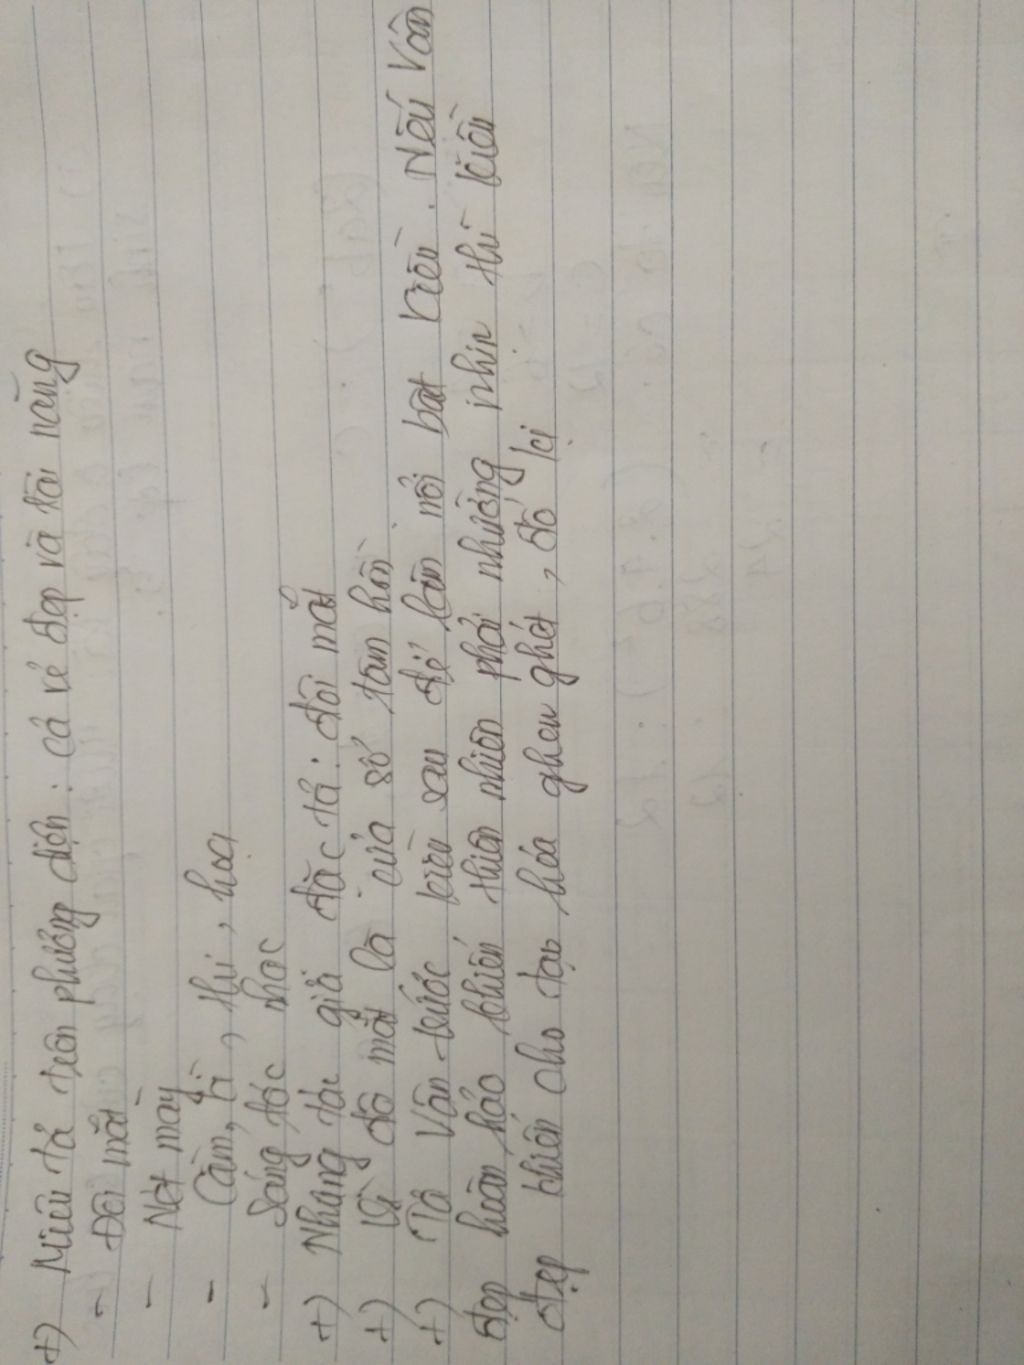 +) Miêu tả trên phương diện: cả vẻ đẹp và tài năng
- Đôi mắt
- Nét mày
- Cầm, kì, thi, hoạ
- Sáng tác nhạc
+) Nhưng tác giả đặc tả: đôi mắt
+) Vì đôi mắt là cửa sổ tâm hồn
+) Tả Vân trước kiều sau để làm nổi bật Kiều. Nếu Vân
đẹp hoàn hảo khiến thiên nhiên phải nhường nhịn thì kiều
đẹp khiến cho tạo hóa ghen ghét, đố kị